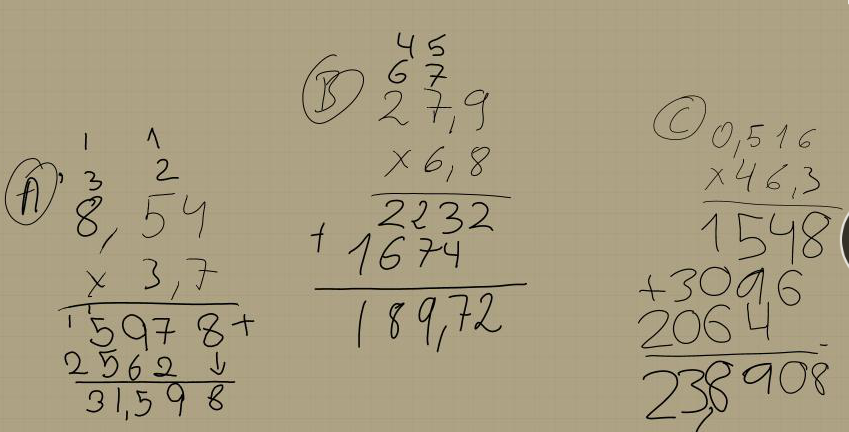 A
1 1
3 2
8,54
x 3,7
1 1
5978+
2562↓
31,598
B
4 5
6 7
27,9
x6,8
2232
+
1674
189,72
C
0,516
x46,3
1548
+3096
2064
23,8908